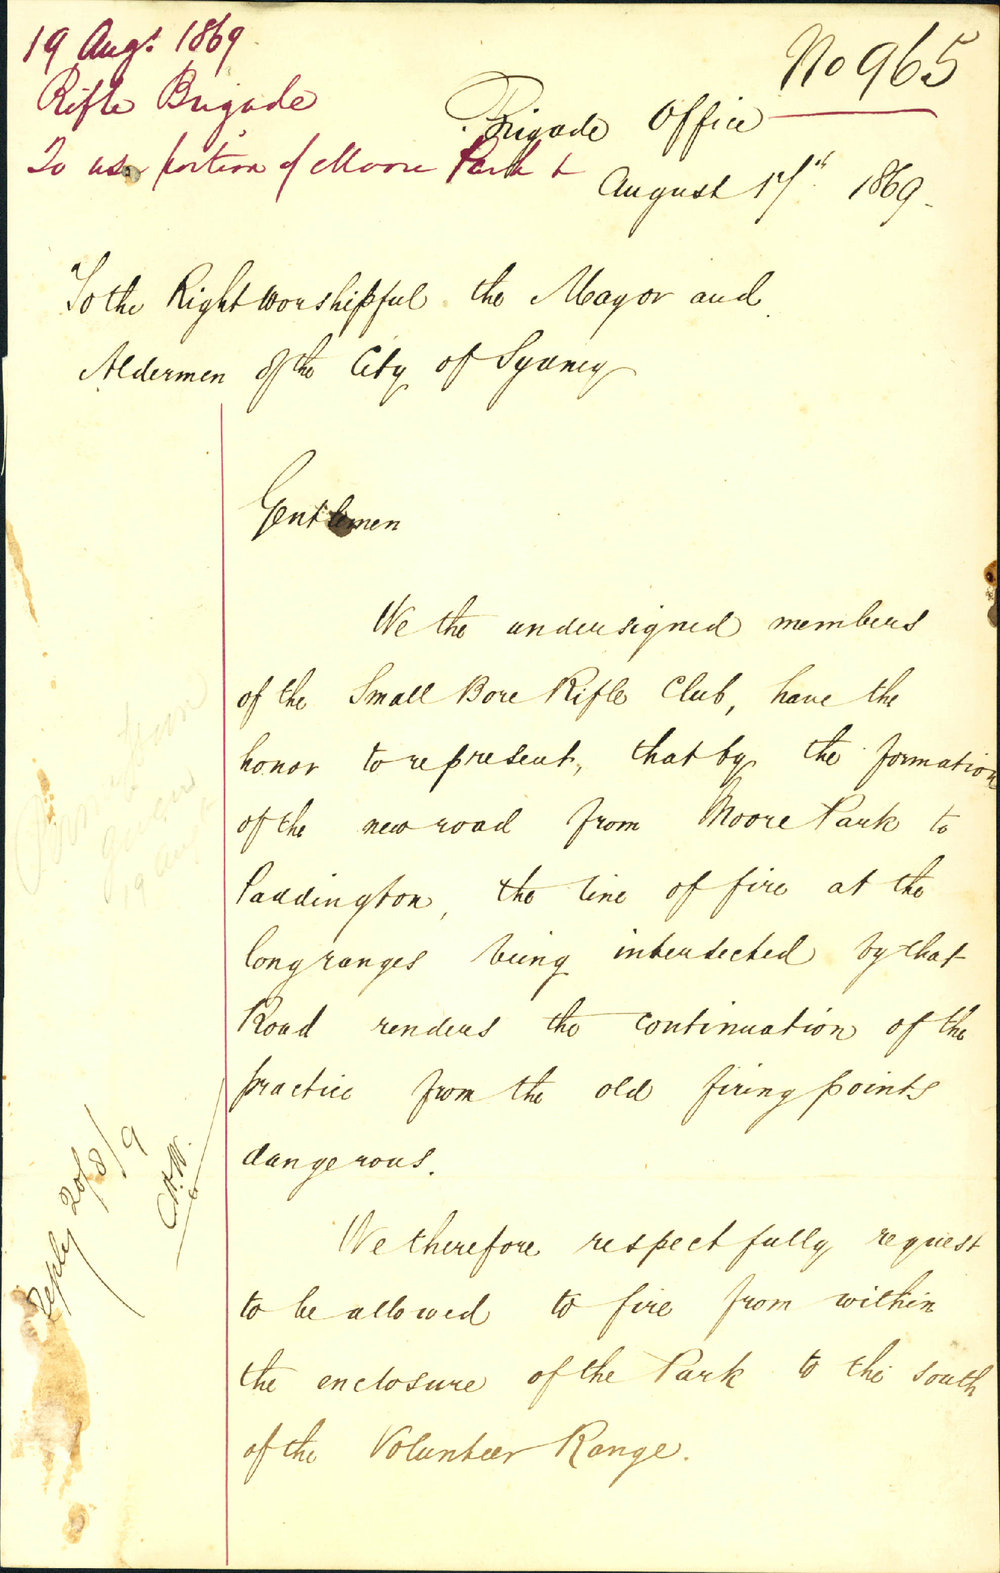 19 Augt 1869
Rifle Brigade
To use portion of Moore Park
No 965
Brigade Office
August 17th 1869.
To the Right Worshipful the Mayor and
Aldermen of the City of Sydney
Gentlemen
We the undersigned members
of the Small Bore Rifle Club, have the
honor to represent, that by the formation
of the new road from Moore Park to
Paddington, the line of fire at the
long ranges being intersected by that
Road renders the continuation of the
practice from the old firing points
dangerous.
We therefore respectfully request
to be allowed to fire from within
the enclosure of the Park to the south
of the Volunteer Range.
Reply 20/8/9
19 Aug